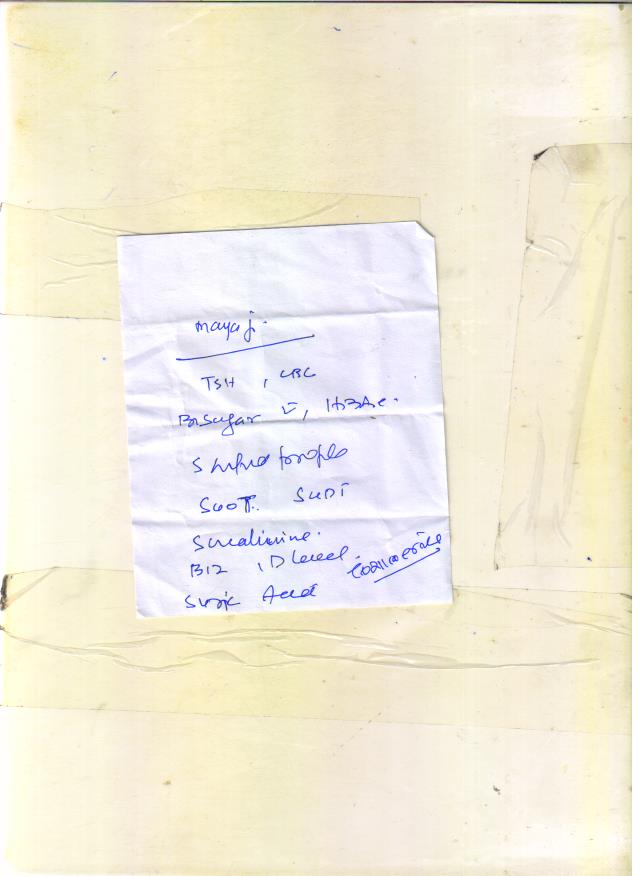 mayaji.
TSH , CBC
Bl sugar F, HBA1c.
S Lipid Profile
SGOT. SGPT
S creatinine.
B12 , D level.
S uric Acid